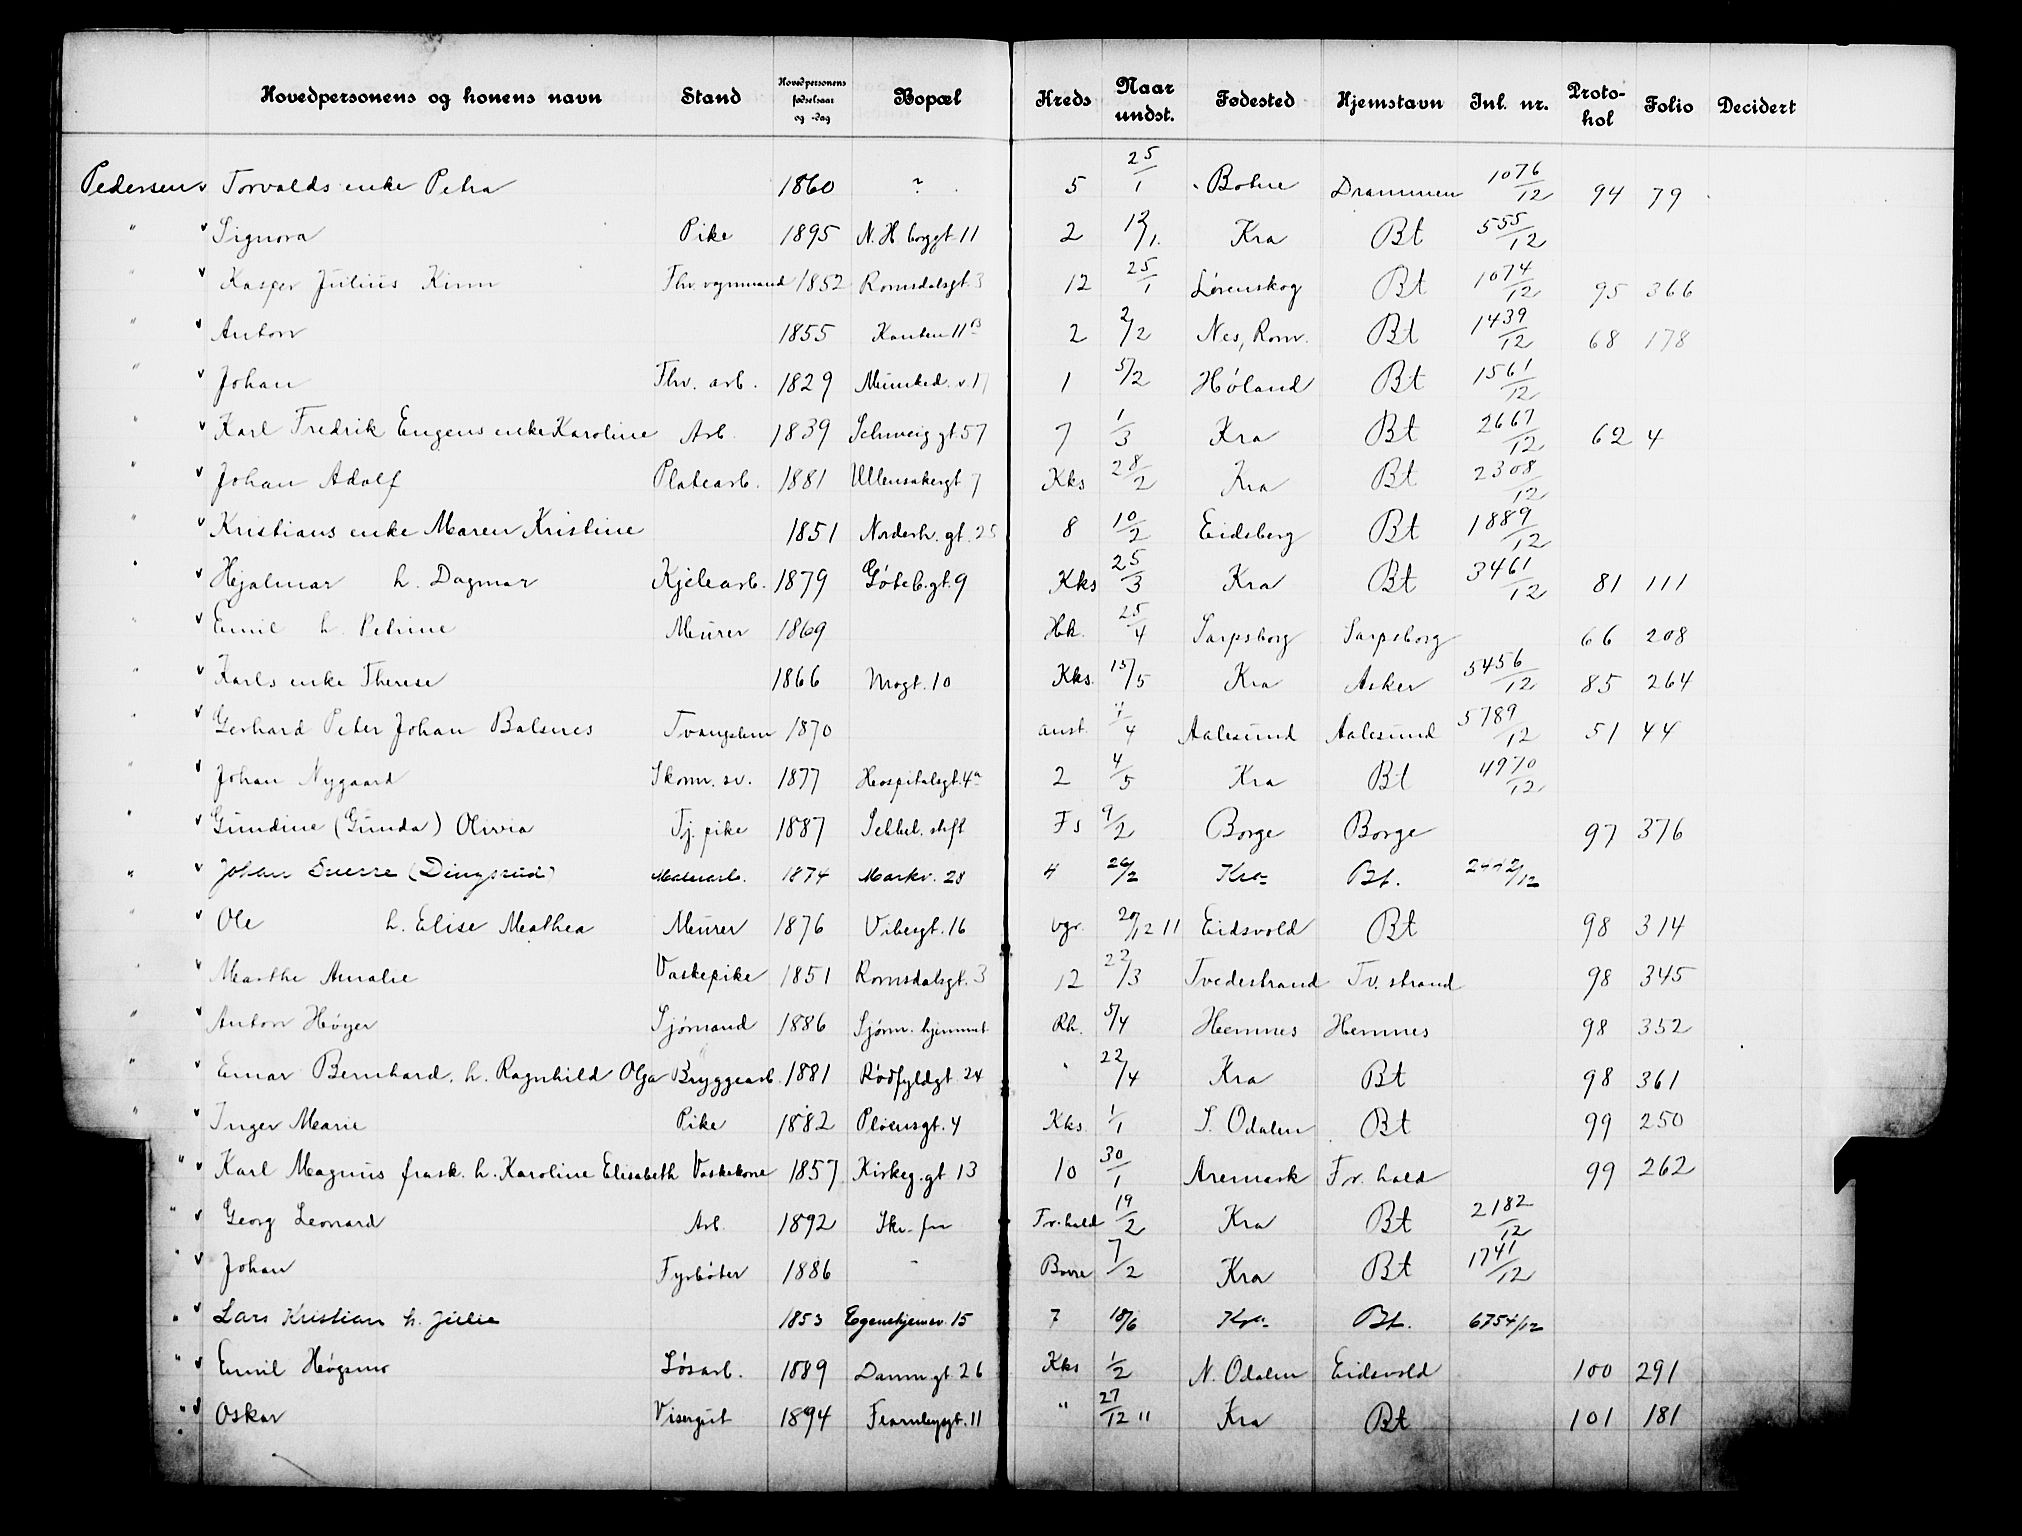 Hovedpersonens og konens navn Stand Hovedpersonens fødselsaar og -dag Bopæl Kreds Naar undst. Fødested Hjemstavn Jnl. nr. Proto-kol Folio Decidert
Pedersen v Torvalds enke Petra 1860 ? 5 25/1 Drammen 1076/12 94 79
" v Signora Pike 1895 N. H borggt 11 2 12/1 Kra Bt 555/12
" v Kasper Julius Kinn Fhv. vognmand 1852 Romsdalsgt. 3 12 25/1 Lørenskog Bt 1074/12 95 366
" v Anton 1855 2 2/2 Nes, Rom. Bt 1439/12 68 178
" v Johan Fhv. arb. 1829 Munked. v. 17 1 5/2 Høland Bt 1561/12
" v Karl Fredrik Eugens enke Karoline Arb. 1839 Schweig gt 57 7 1/3 Kra Bt 2667/12 62 4
" v Johan Adolf Platearb. 1881 Ullensakergt 7 Kks 28/2 Kra Bt 2308/12
" v Kristians enke Maren Kristine 1851 Norderh. gt. 25 8 10/2 Eidsberg Bt 1889/12
" v Hjalmar h. Dagmar Kjelearb. 1879 Göteb. gt. 9 Kks 25/3 Kra Bt 3461/12 81 111
" v Emil h. Petrine Murer 1869 Hk. 25/4 Sarpsborg Sarpsborg 66 208
" v Karls enke Therese 1866 Mogt. 10 Kks. 15/5 Kra Asker 5456/12 85 264
" v Gerhard Peter Johan Balsnes Tvangslem 1870 anst. 7/4 Aalesund Aalesund 5789/12 51 44
" v Johan Nygaard Skom. sv. 1877 Hospitalsgt. 4a 2 4/5 Kra Bt 4970/12
" v Gundine (Gunda) Olivia Tj. pike 1887 Sebbel. stift Fs 9/2 Borge Borge 97 376
" v Johan Sverre (Dingsrud) Malerarb. 1874 Markv. 28 4 26/2 Kra Bt. 2442/12
" v Ole h. Elise Mathea Murer 1876 Vibergt. 16 vgr. 20/12 11 Eidsvold Bt 98 314
" v Marthe Amalie Vaskepike 1851 Romsdalsgt. 3 12 22/3 Tvedestrand Tv. strand 98 345
" v Anton Høyer Sjømand 1886 Sjøm. hjemmet Rh. 5/4 Hemnes Hemnes 98 352
" v Einar Bernhard. h. Ragnhild Olga Bryggearb. 1881 Rødfyldgt. 24 " 22/4 Kra Bt 98 361
" v Inger Marie Pike 1882 Pløensgt. 4 Kks 1/1 S. Odalen Bt 99 250
" v Karl Magnus frask. h. Karoline Elisabeth Vaskekone 1857 Kirkeg. gt 13 10 30/1 Aremark Fr. hald 99 262
" v Georg Leonard Arb. 1892 Fr. hald 19/2 Kra Bt 2182/12
" v Johan Fyrbøter 1886 - Borre 7/2 Kra Bt 1741/12
" v Lars Kristian h. Julie 1853 Egenhjemsv. 15 7 18/6 Kra Bt. 6754/12
" v Emil Høgsmo Løsarb. 1889 Danm gt. 26 Kks 1/2 N. Odalen Eidsvold 100 291
" v Oskar Visergut 1894 Fearnleysgt. 11 " 27/12 11 Kra Bt 101 181